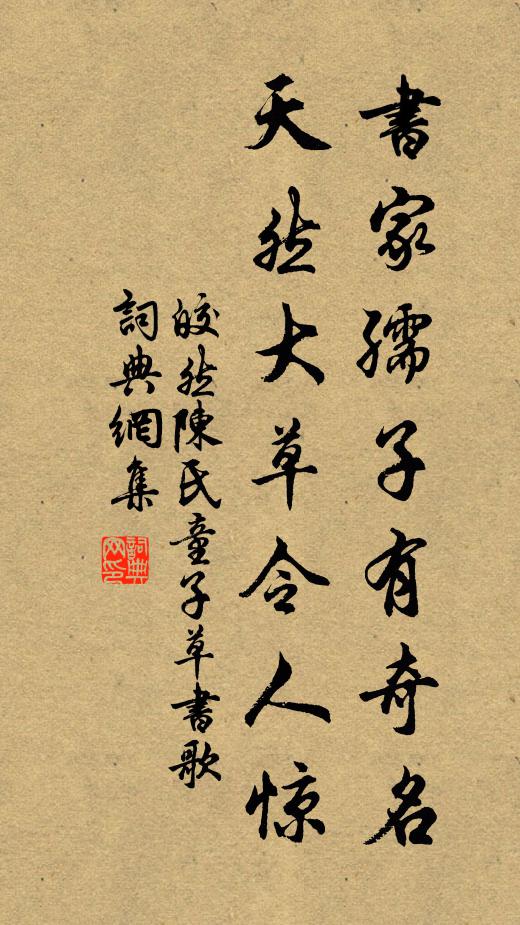 書家孺子有奇名
天然大草令人惊
皎然陳氏童子草書歌
詞典網集
詞典網印